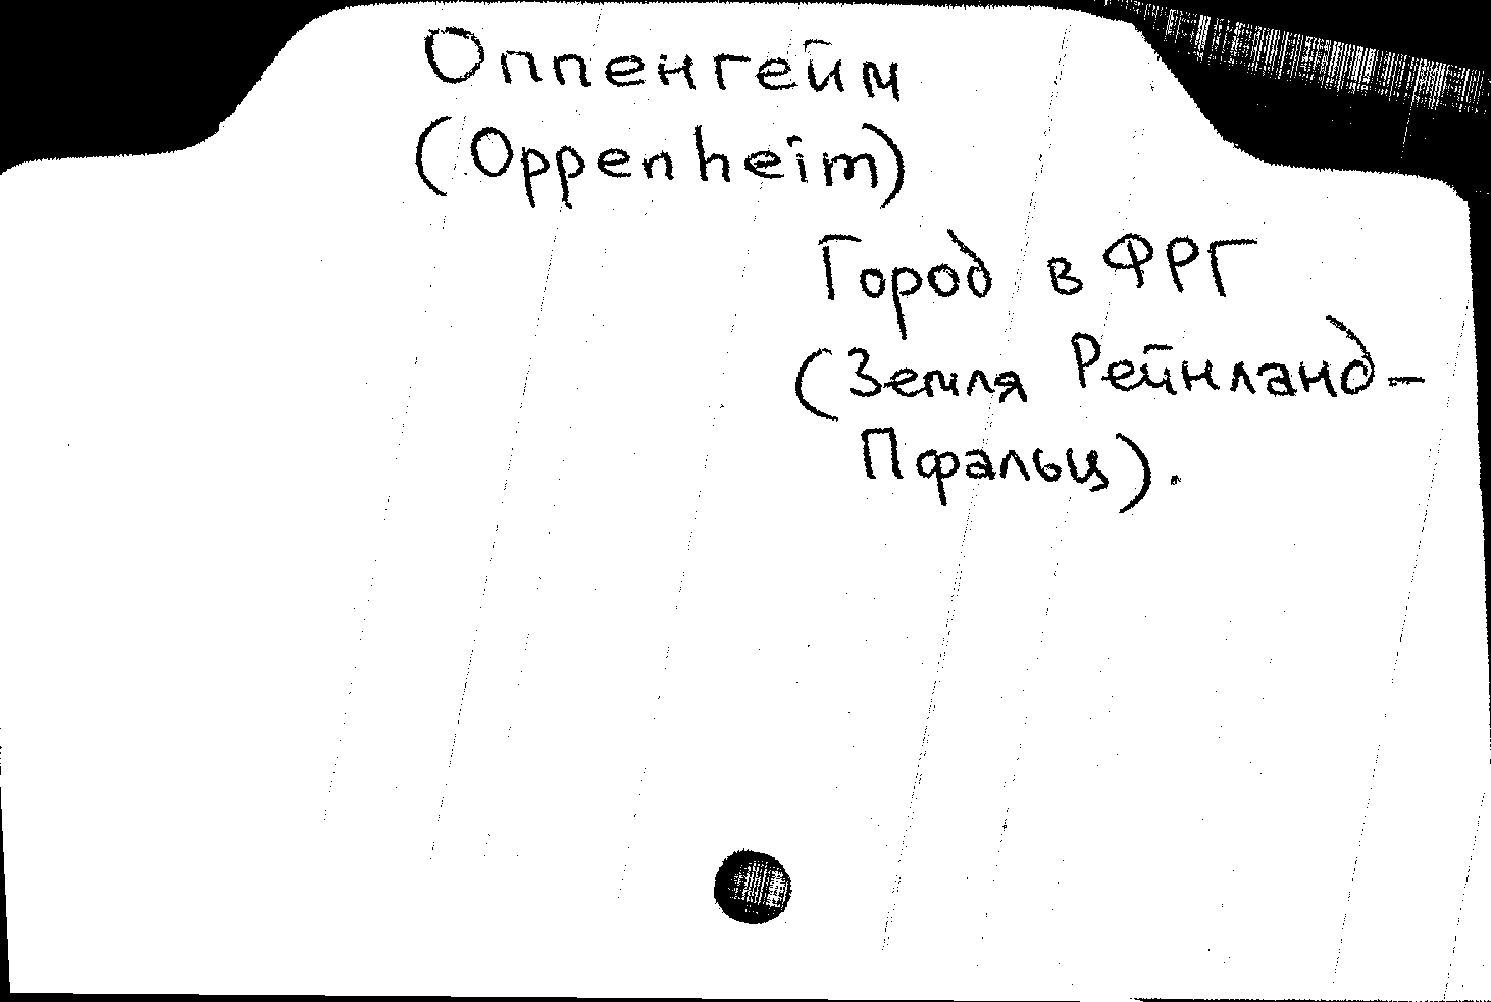 Оппенгейм
(Oppenheim)
Город в ФРГ
(Земля Рейнланд-
Пфальц).